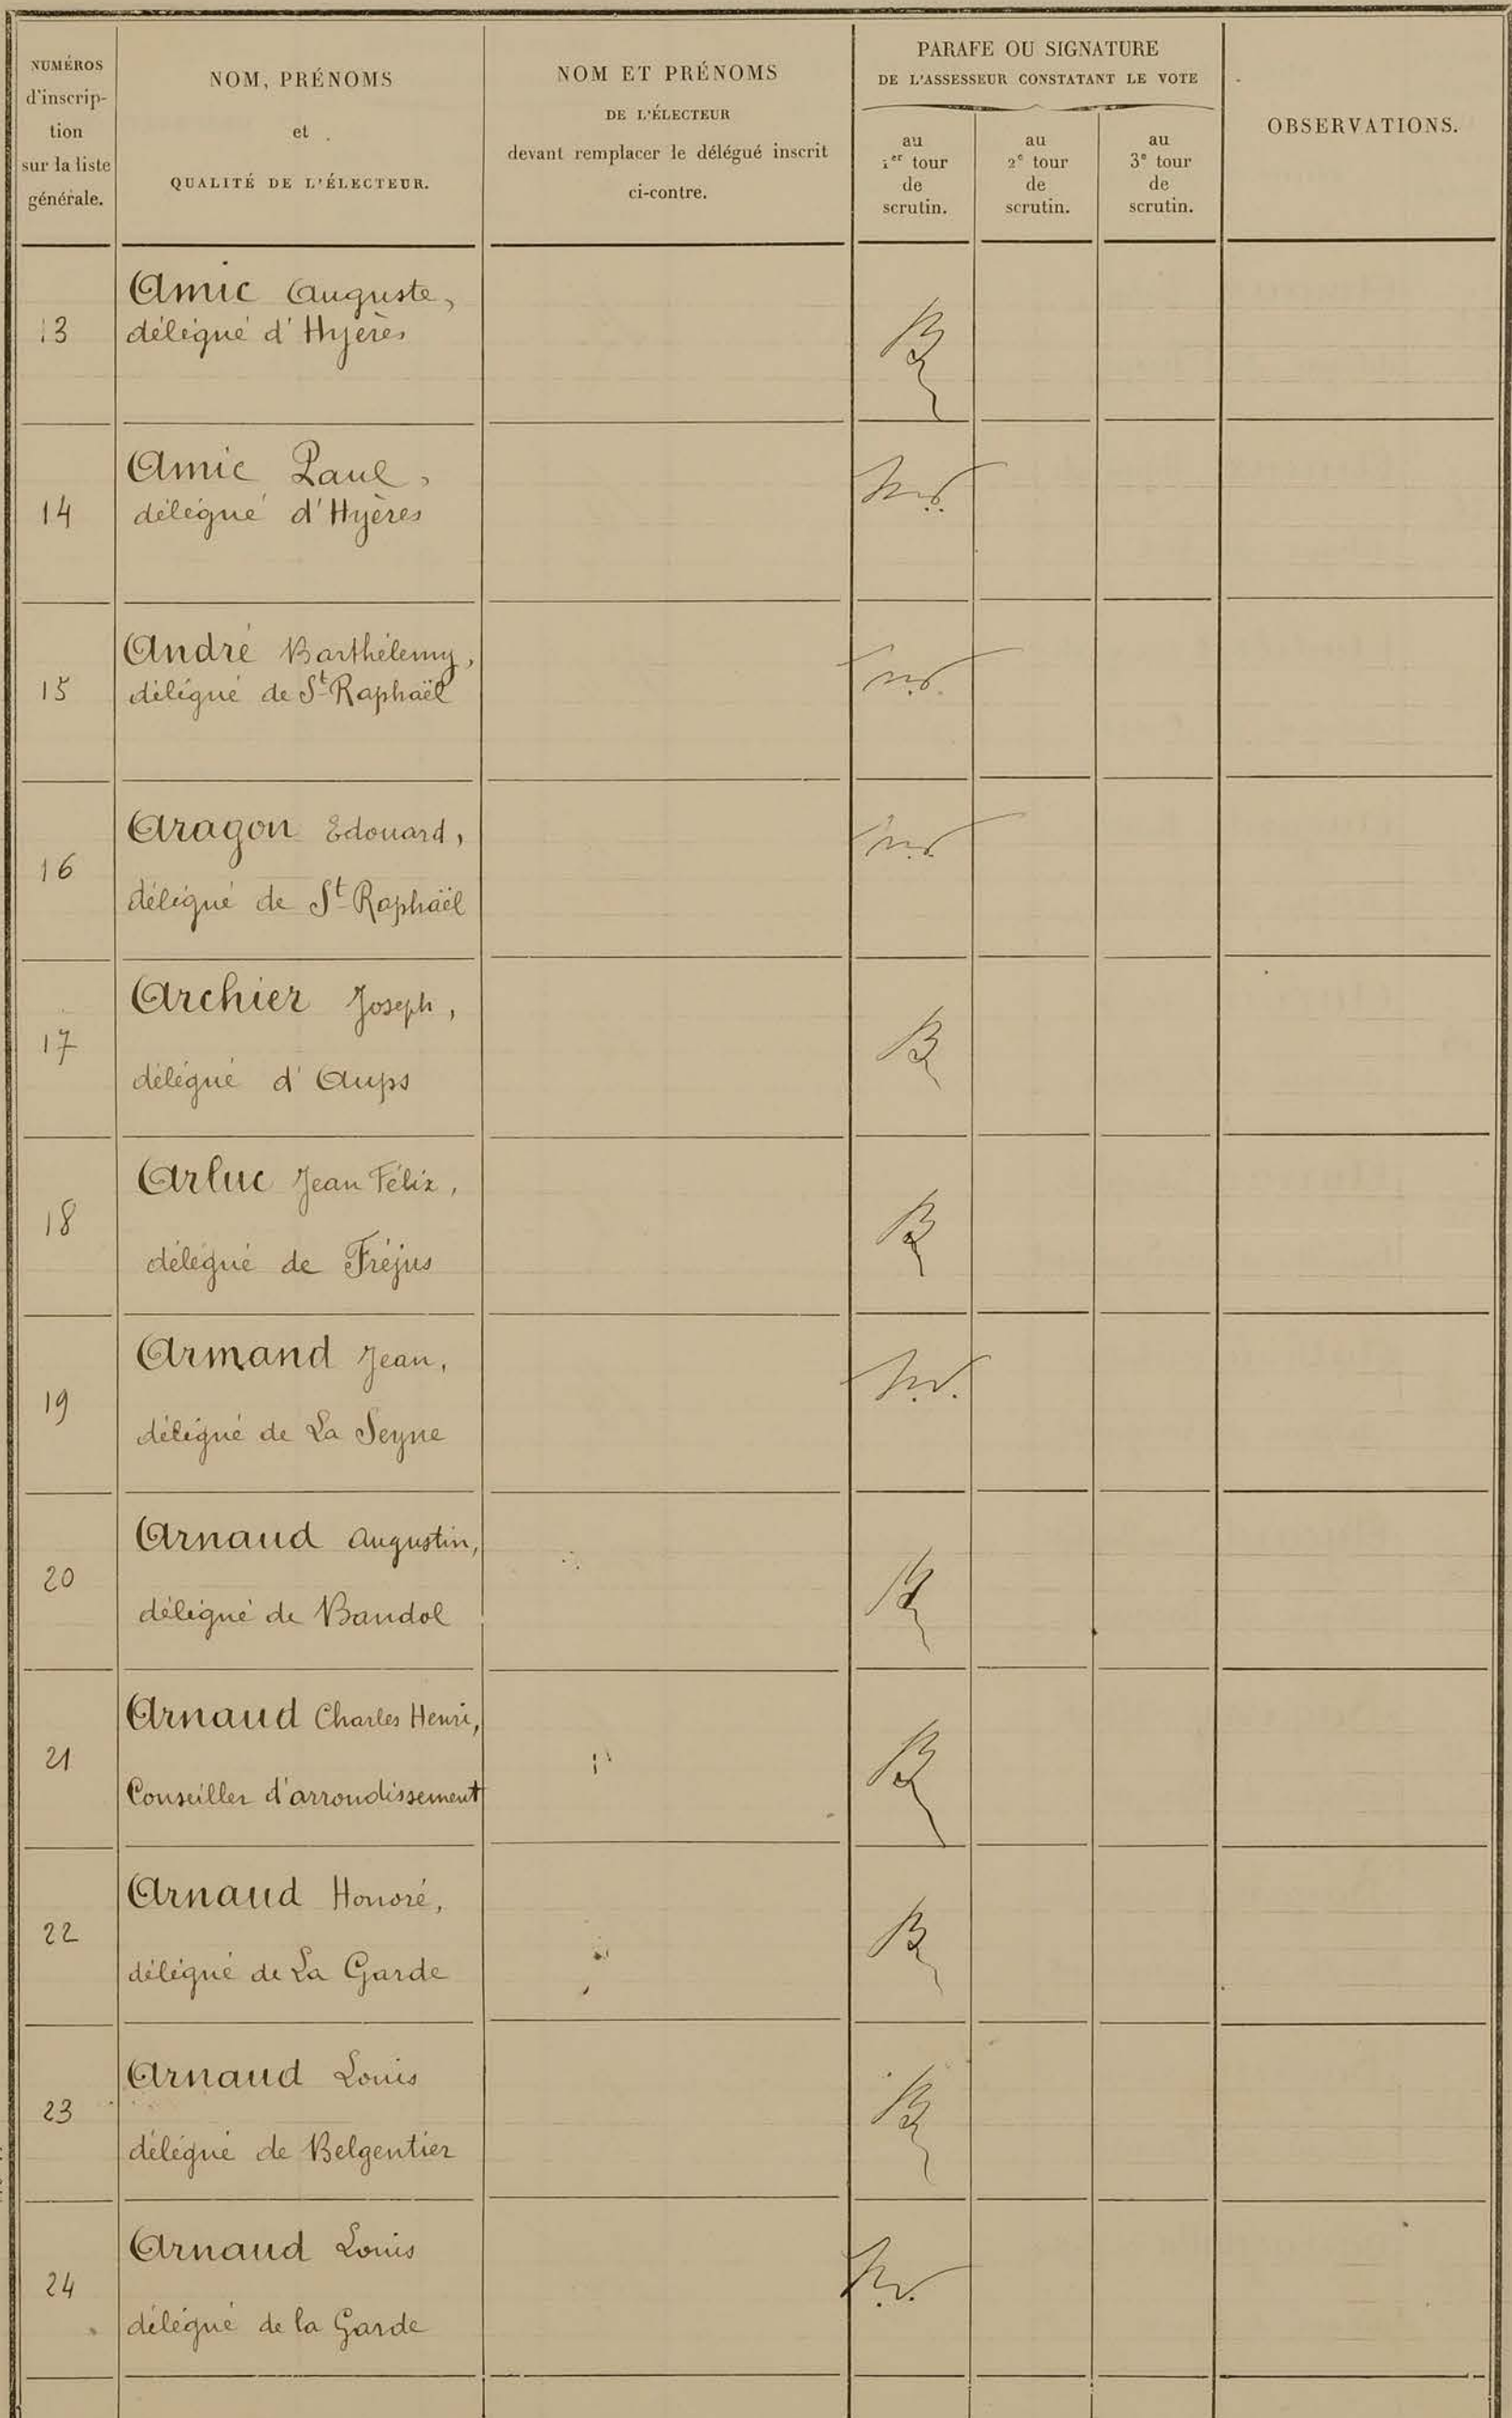 NUMÉROS
d'inscrip-
tion
sur la liste
générale.
NOM, PRÉNOMS
et
QUALITÉ DE L'ÉLECTEUR.
NOM ET PRÉNOMS
DE L'ÉLECTEUR
devant remplacer le délégué inscrit
ci-contre.
PARAFE OU SIGNATURE
DE L'ASSESSEUR CONSTATANT LE VOTE
au
1er tour
de
scrutin.
au
2e tour
de
scrutin.
au
3e tour
de
scrutin.
OBSERVATIONS.
13
Amic Auguste,
délégué d'Hyères
14
Amic Paul,
délégué d'Hyères
15
André Barthélemy,
délégué de St Raphaël
16
Aragon Edouard,
délégué de St Raphaël
17
Archier Joseph,
délégué d'Aups
18
Arluc Jean Félix,
délégué de Fréjus
19
Armand Jean,
délégué de La Seyne
20
Arnaud Augustin,
délégué de Bandol
21
Arnaud Charles Henri,
Conseiller d'arrondissement
22
Arnaud Honoré,
délégué de La Garde
23
Arnaud Louis
délégué de Belgentier
24
Arnaud Louis
délégué de la Garde